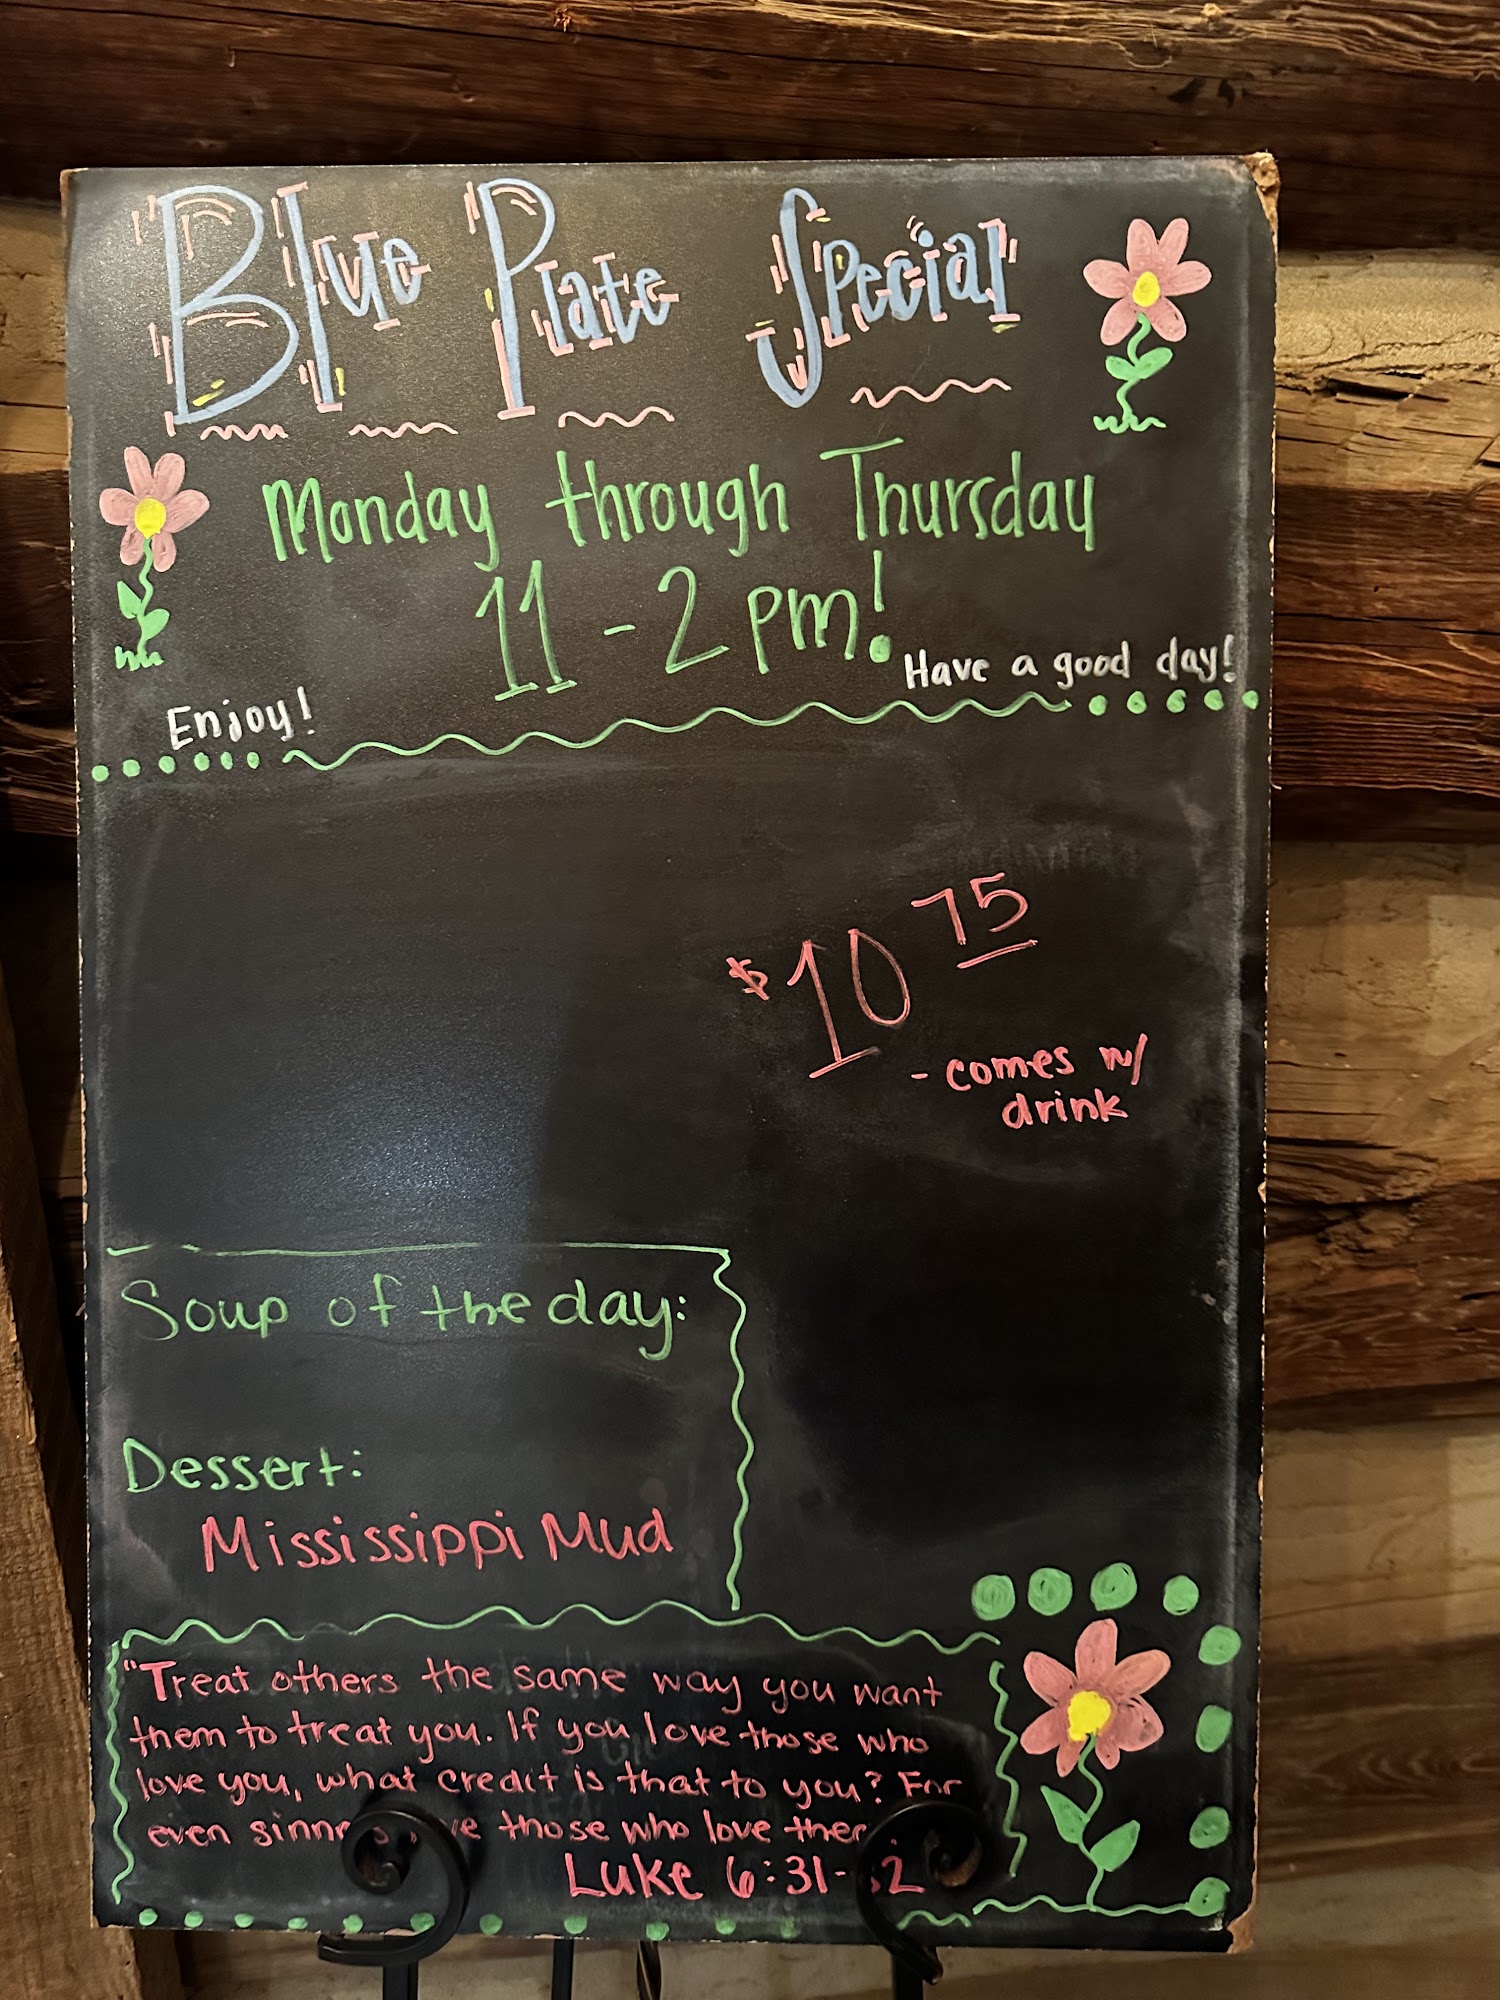 Blue Plate Special
Monday through Thursday
11 - 2 pm!
Have a good day!
Enjoy!
$10 75
- comes w/
drink
Soup of the day:
Dessert:
Mississippi Mud
"Treat others the same way you want
them to treat you. If you love those who
love you, what credit is that to you? For
even sinners love those who love them.
Luke 6:31-32